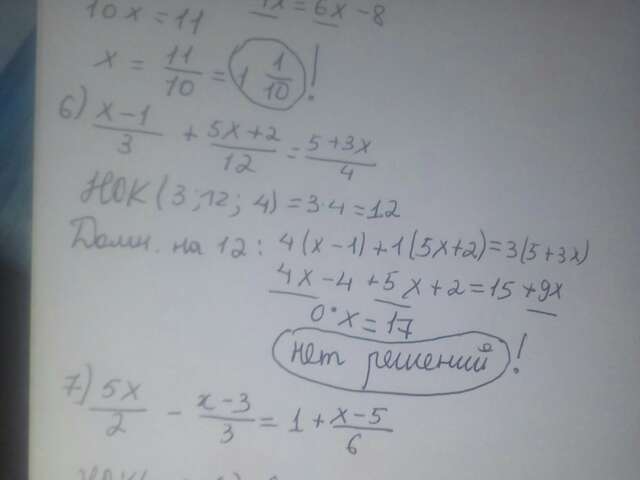 10x = 11
x = 6x - 8
x = 11/10 = 1 1/10 !
6) x-1/3 + 5x+2/12 = 5+3x/4
НОК (3; 12; 4) = 3·4 = 12
Домн. на 12: 4(x-1)+1(5x+2)=3(5+3x)
4x-4+5x+2=15+9x
0·x=17
нет решений !
7) 5x/2 - x-3/3 = 1 + x-5/6